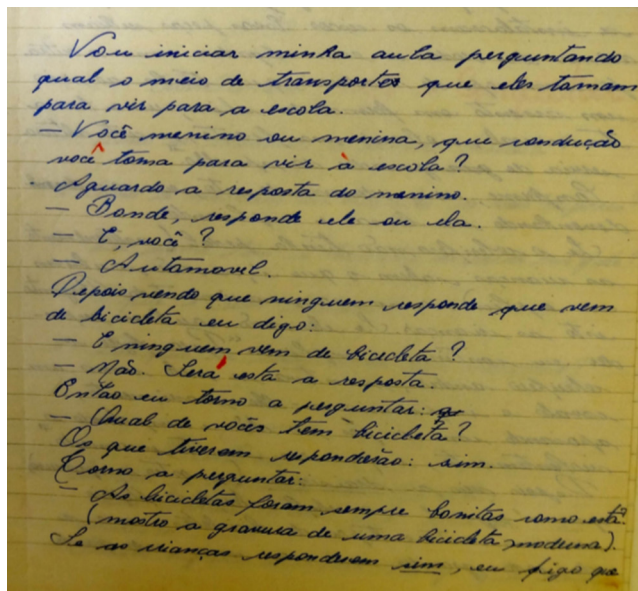 Vou iniciar minha aula perguntando
qual o meio de transportes que eles tomam
para vir para a escola.
— Você menino ou menina, que condução
você toma para vir à escola?
Aguardo a resposta do menino.
— Bonde, responde ele ou ela.
— E, você?
— Automovel.
Depois vendo que ninguem responde que vem
de bicicleta eu digo:
— E ninguem vem de bicicleta?
— Não. Será esta a resposta.
Então eu torno a perguntar:
— Qual de vocês tem bicicleta?
Os que tiverem responderão: sim.
Torno a perguntar:
— As bicicletas foram sempre bonitas como esta?
(mostro a gravura de uma bicicleta moderna).
Se as crianças responderem sim, eu digo que